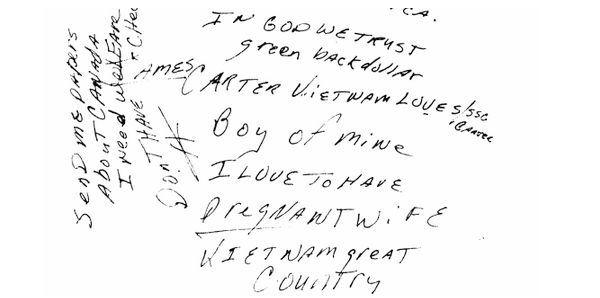 CA.
IN GOD WE TRUST
green backdollar
AMES CARTER VIETNAM LOVES
Boy of mine
I LOVE TO HAVE
PregNANT WiFE
VIETNAM great
Country
SenD me PAPers
About CANADA
I need WelFare
Don'T HAVE